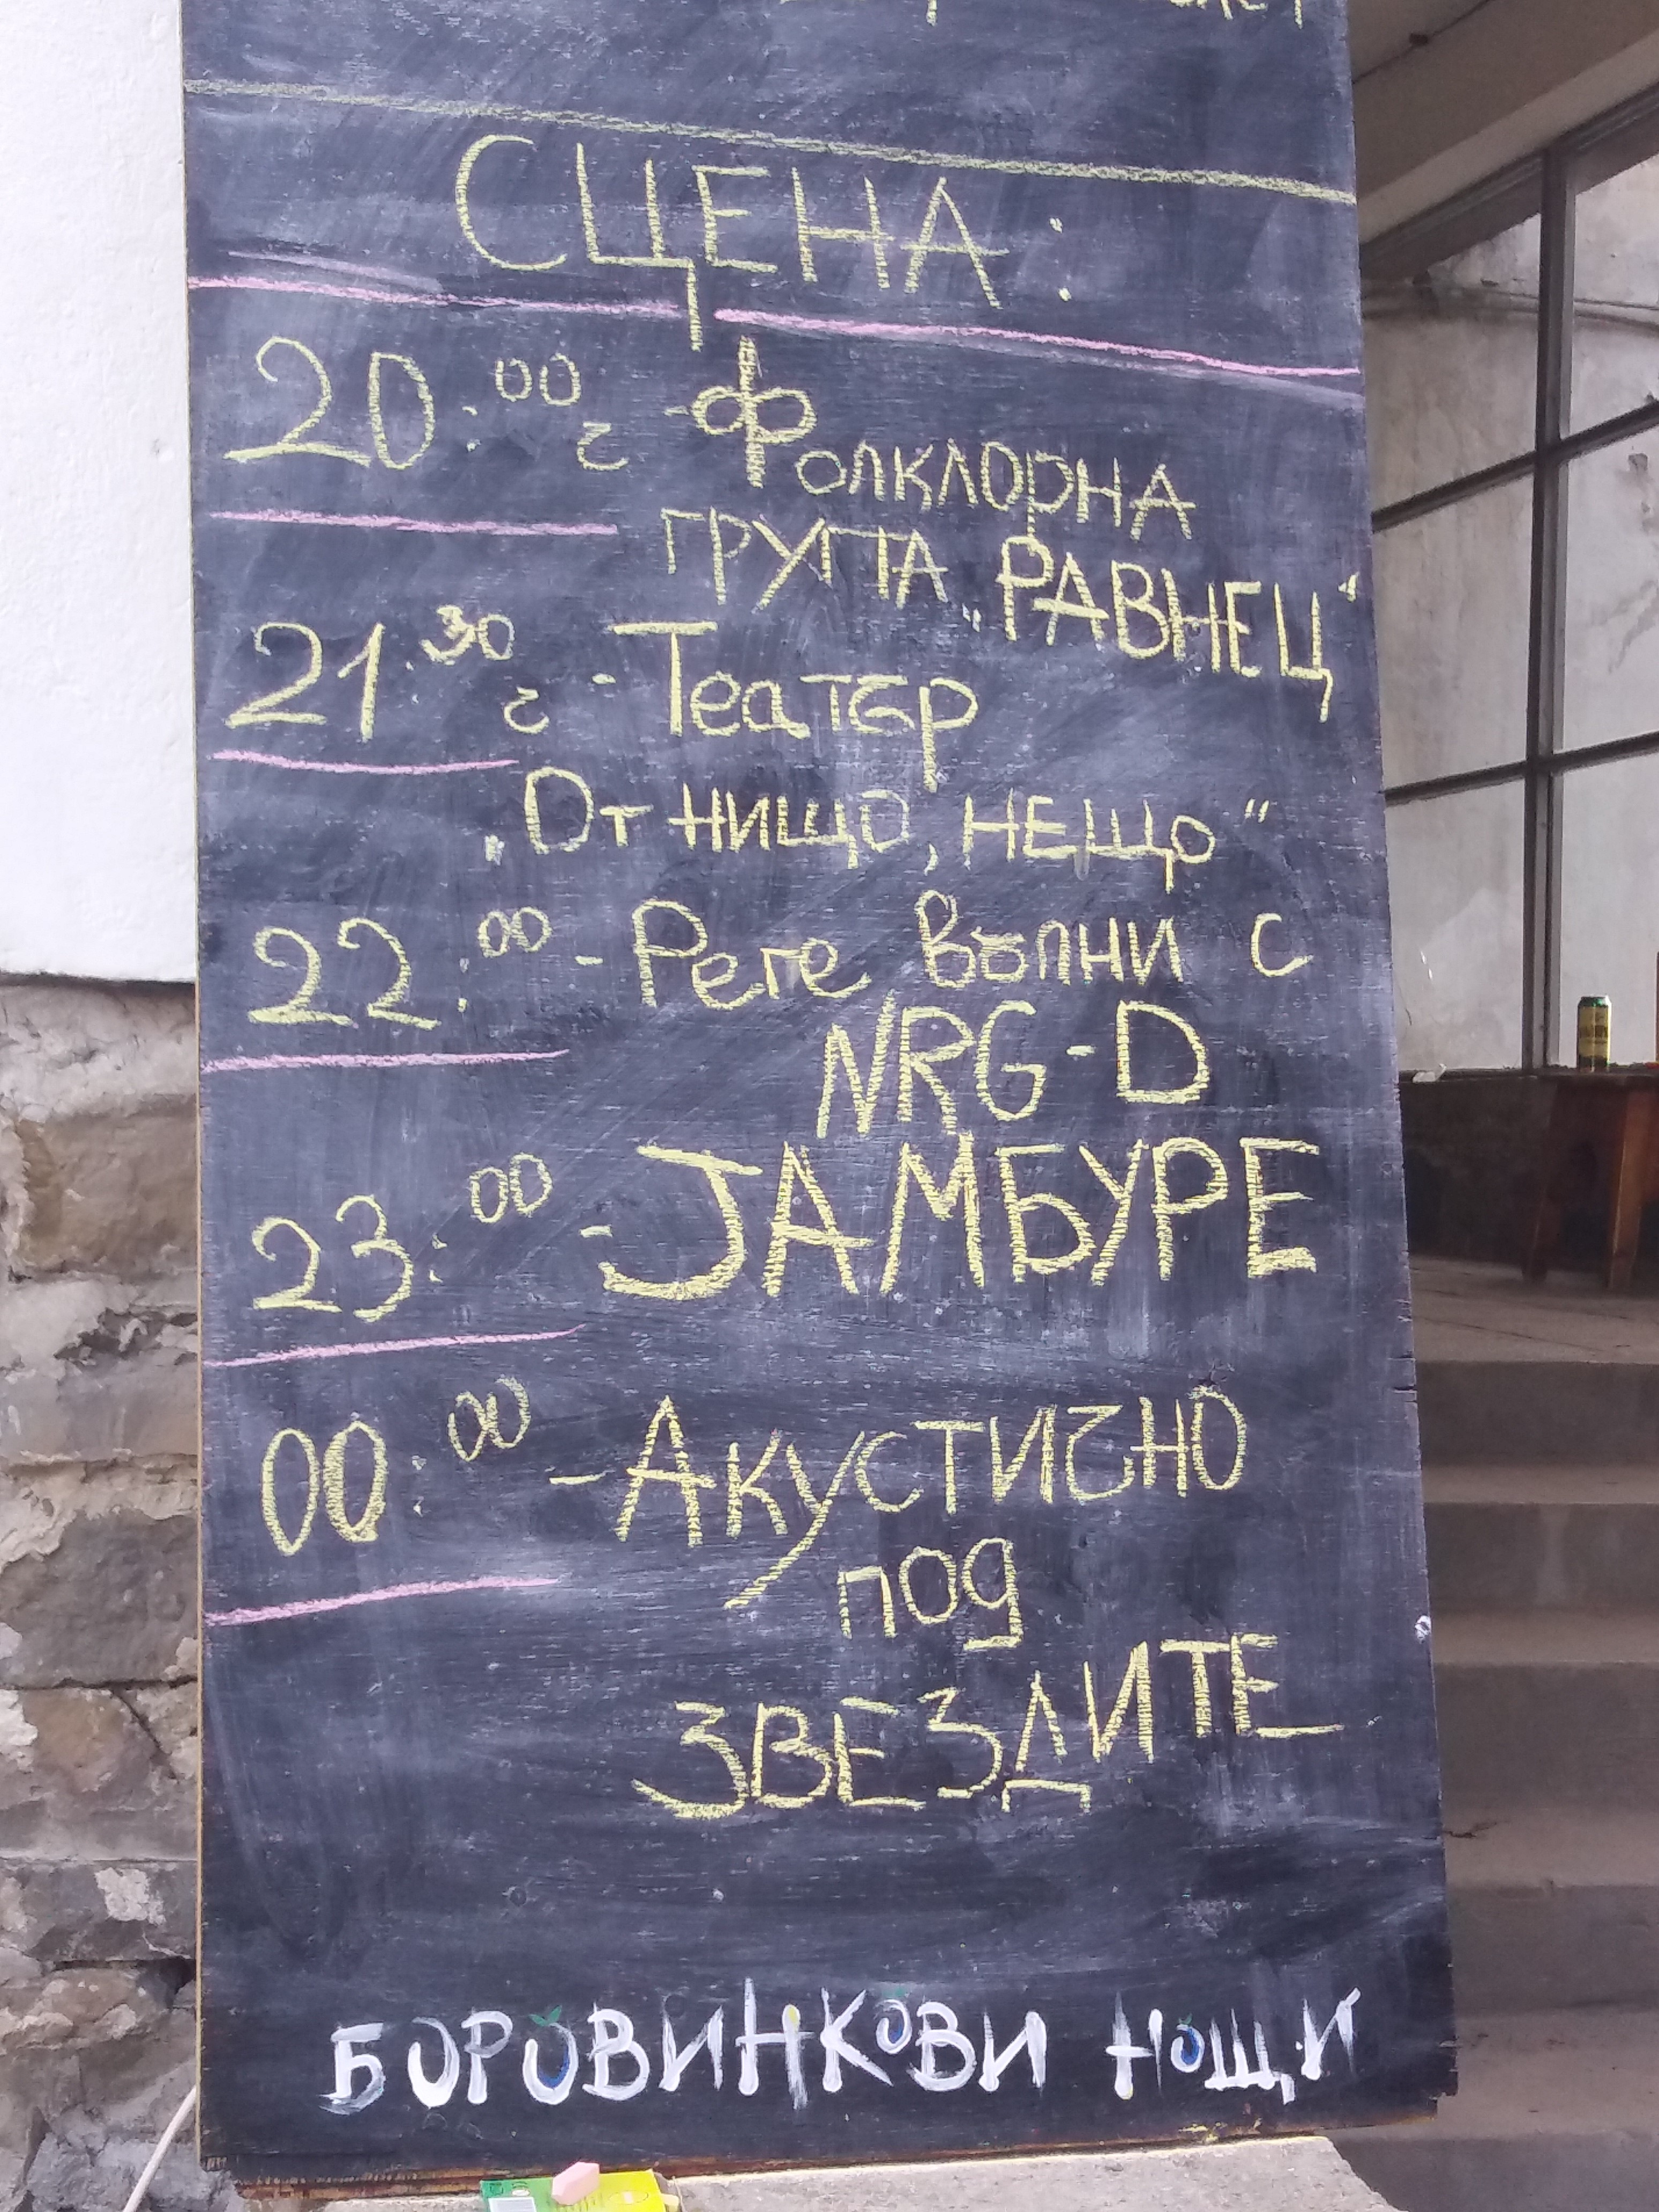 СЦЕНА:
20:00 г - Фолклорна
група „РАВНЕЦ“
21.30 г - Театър
„От нищо, нещо“
22:00 - Реге вълни с
NRG-D
23:00 - JАМБУРЕ
00:00 - Акустично
под
ЗВЕЗДИТЕ
БОРОВИНКОВИ НОЩИ